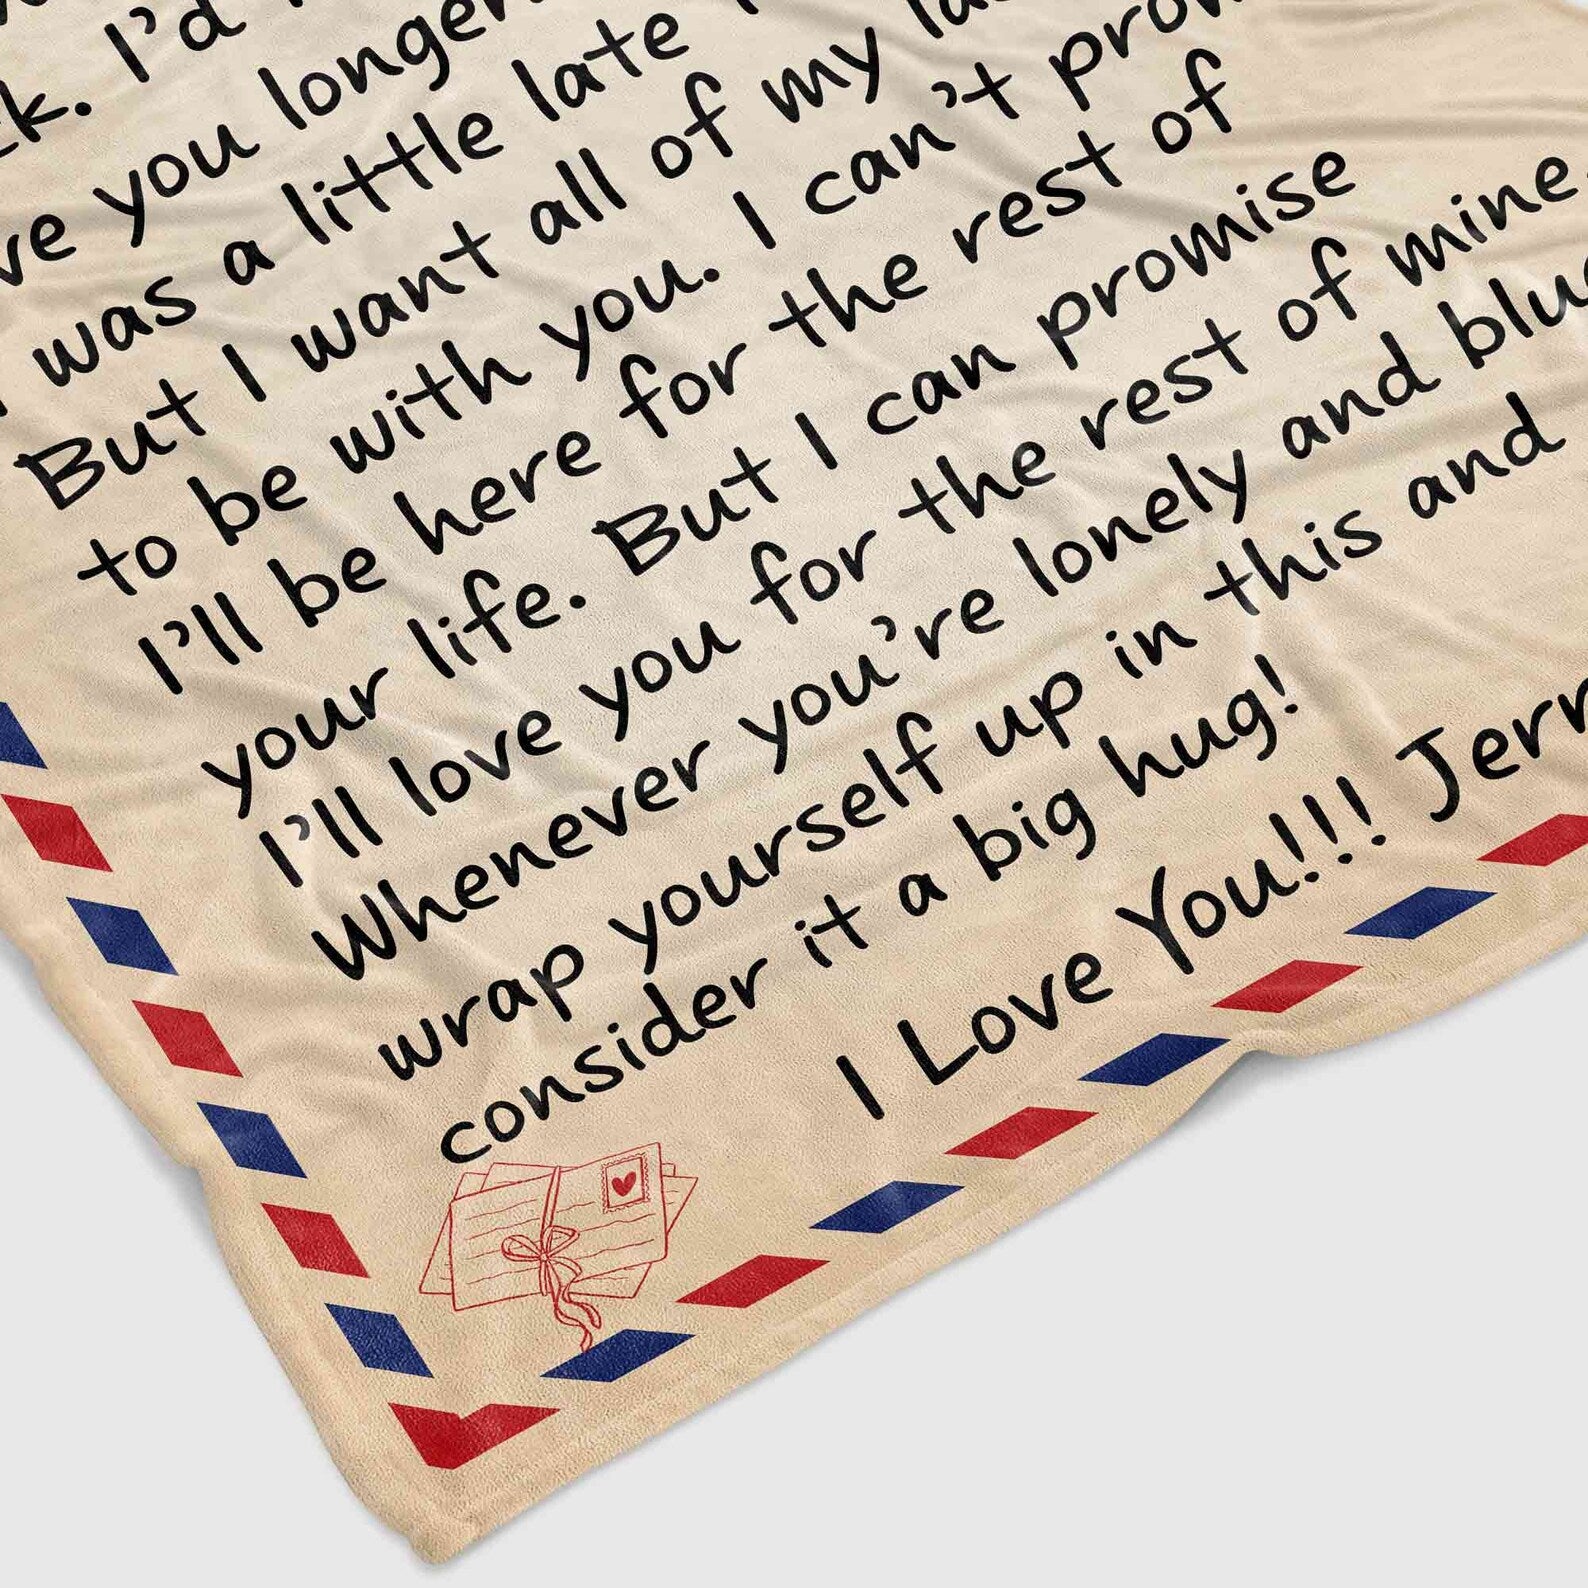 I'd
you longer
was a little late
But I want all of my
to be with you. I can't
I'll be here for the rest of
your life. But I can promise
I'll love you for the rest of mine.
Whenever you're lonely and
wrap yourself up in this and
consider it a big hug!
I Love You!!!